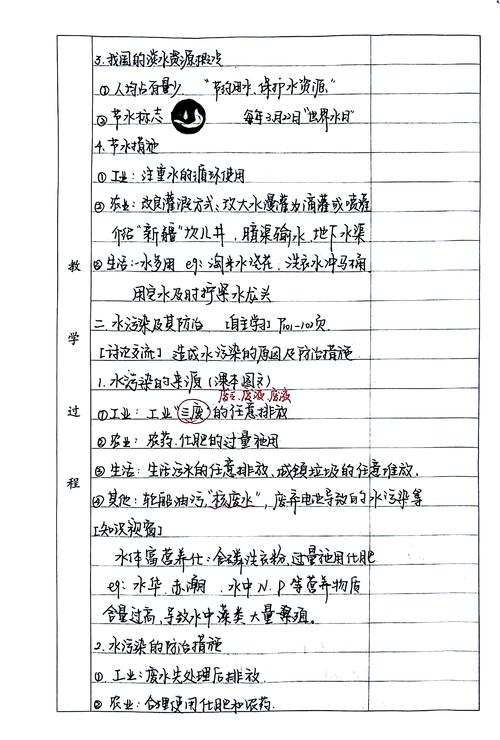 3. 我国的淡水资源概况
① 人均占有量少. "节约用水、保护水资源."
② 节水标志 每年3月22日"世界水日"
4. 节水措施
① 工业: 注重水的循环使用
② 农业: 改良灌溉方式、改大水漫灌为滴灌或喷灌
介绍"新疆"坎儿井, 暗渠输水、地下水渠
③ 生活: 一水多用 eg: 淘米水浇花、洗衣水冲马桶
教 用完水及时拧紧水龙头
学 二. 水污染及其防治 [自主学习] P101-102页.
[讨论交流] 造成水污染的原因及防治措施
1. 水污染的来源 (课本图文)
废气、废液、废渣
过 ① 工业: 工业"三废"的任意排放
② 农业: 农药、化肥的过量施用
③ 生活: 生活污水的任意排放、城镇垃圾的任意堆放.
程 ④ 其他: 轮船油污, "核废水", 废弃电池导致的水污染等
[知识视窗]
水体富营养化: 含磷洗衣粉、过量施用化肥
eg: 水华、赤潮 . 水中N、P等营养物质
含量过高, 导致水中藻类大量繁殖。
2. 水污染的防治措施
①. 工业: 废水先处理后排放
② 农业: 合理使用化肥和农药.